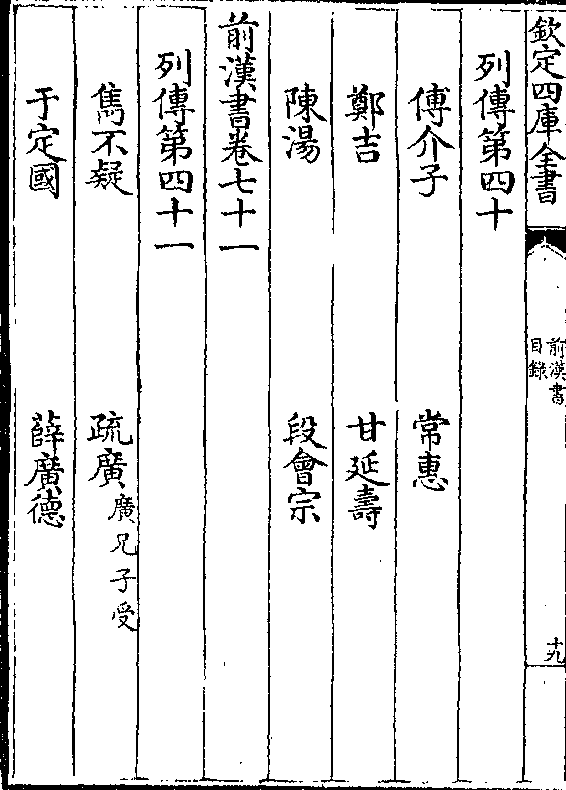 欽定四庫全書
前漢書
目録
十九
列傳第四十
傅介子 常惠
鄭吉 甘延壽
陳湯 段會宗
前漢書卷七十一
列傳第四十一
雋不疑 疏廣 廣兄子受
于定國 薛廣德